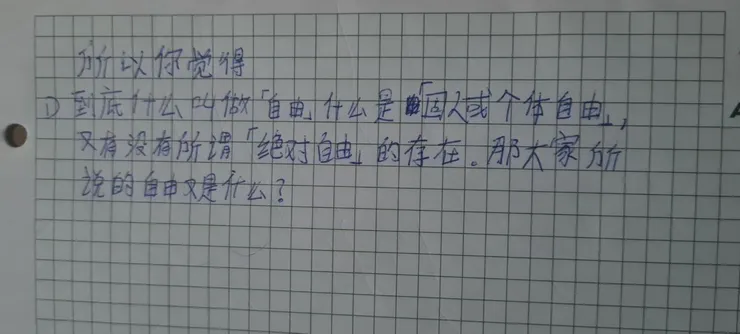 所以你觉得
1) 到底什么叫做「自由」什么是「因人或个体自由」,
又有没有所谓「绝对自由」的存在。那大家所
说的自由又是什么?